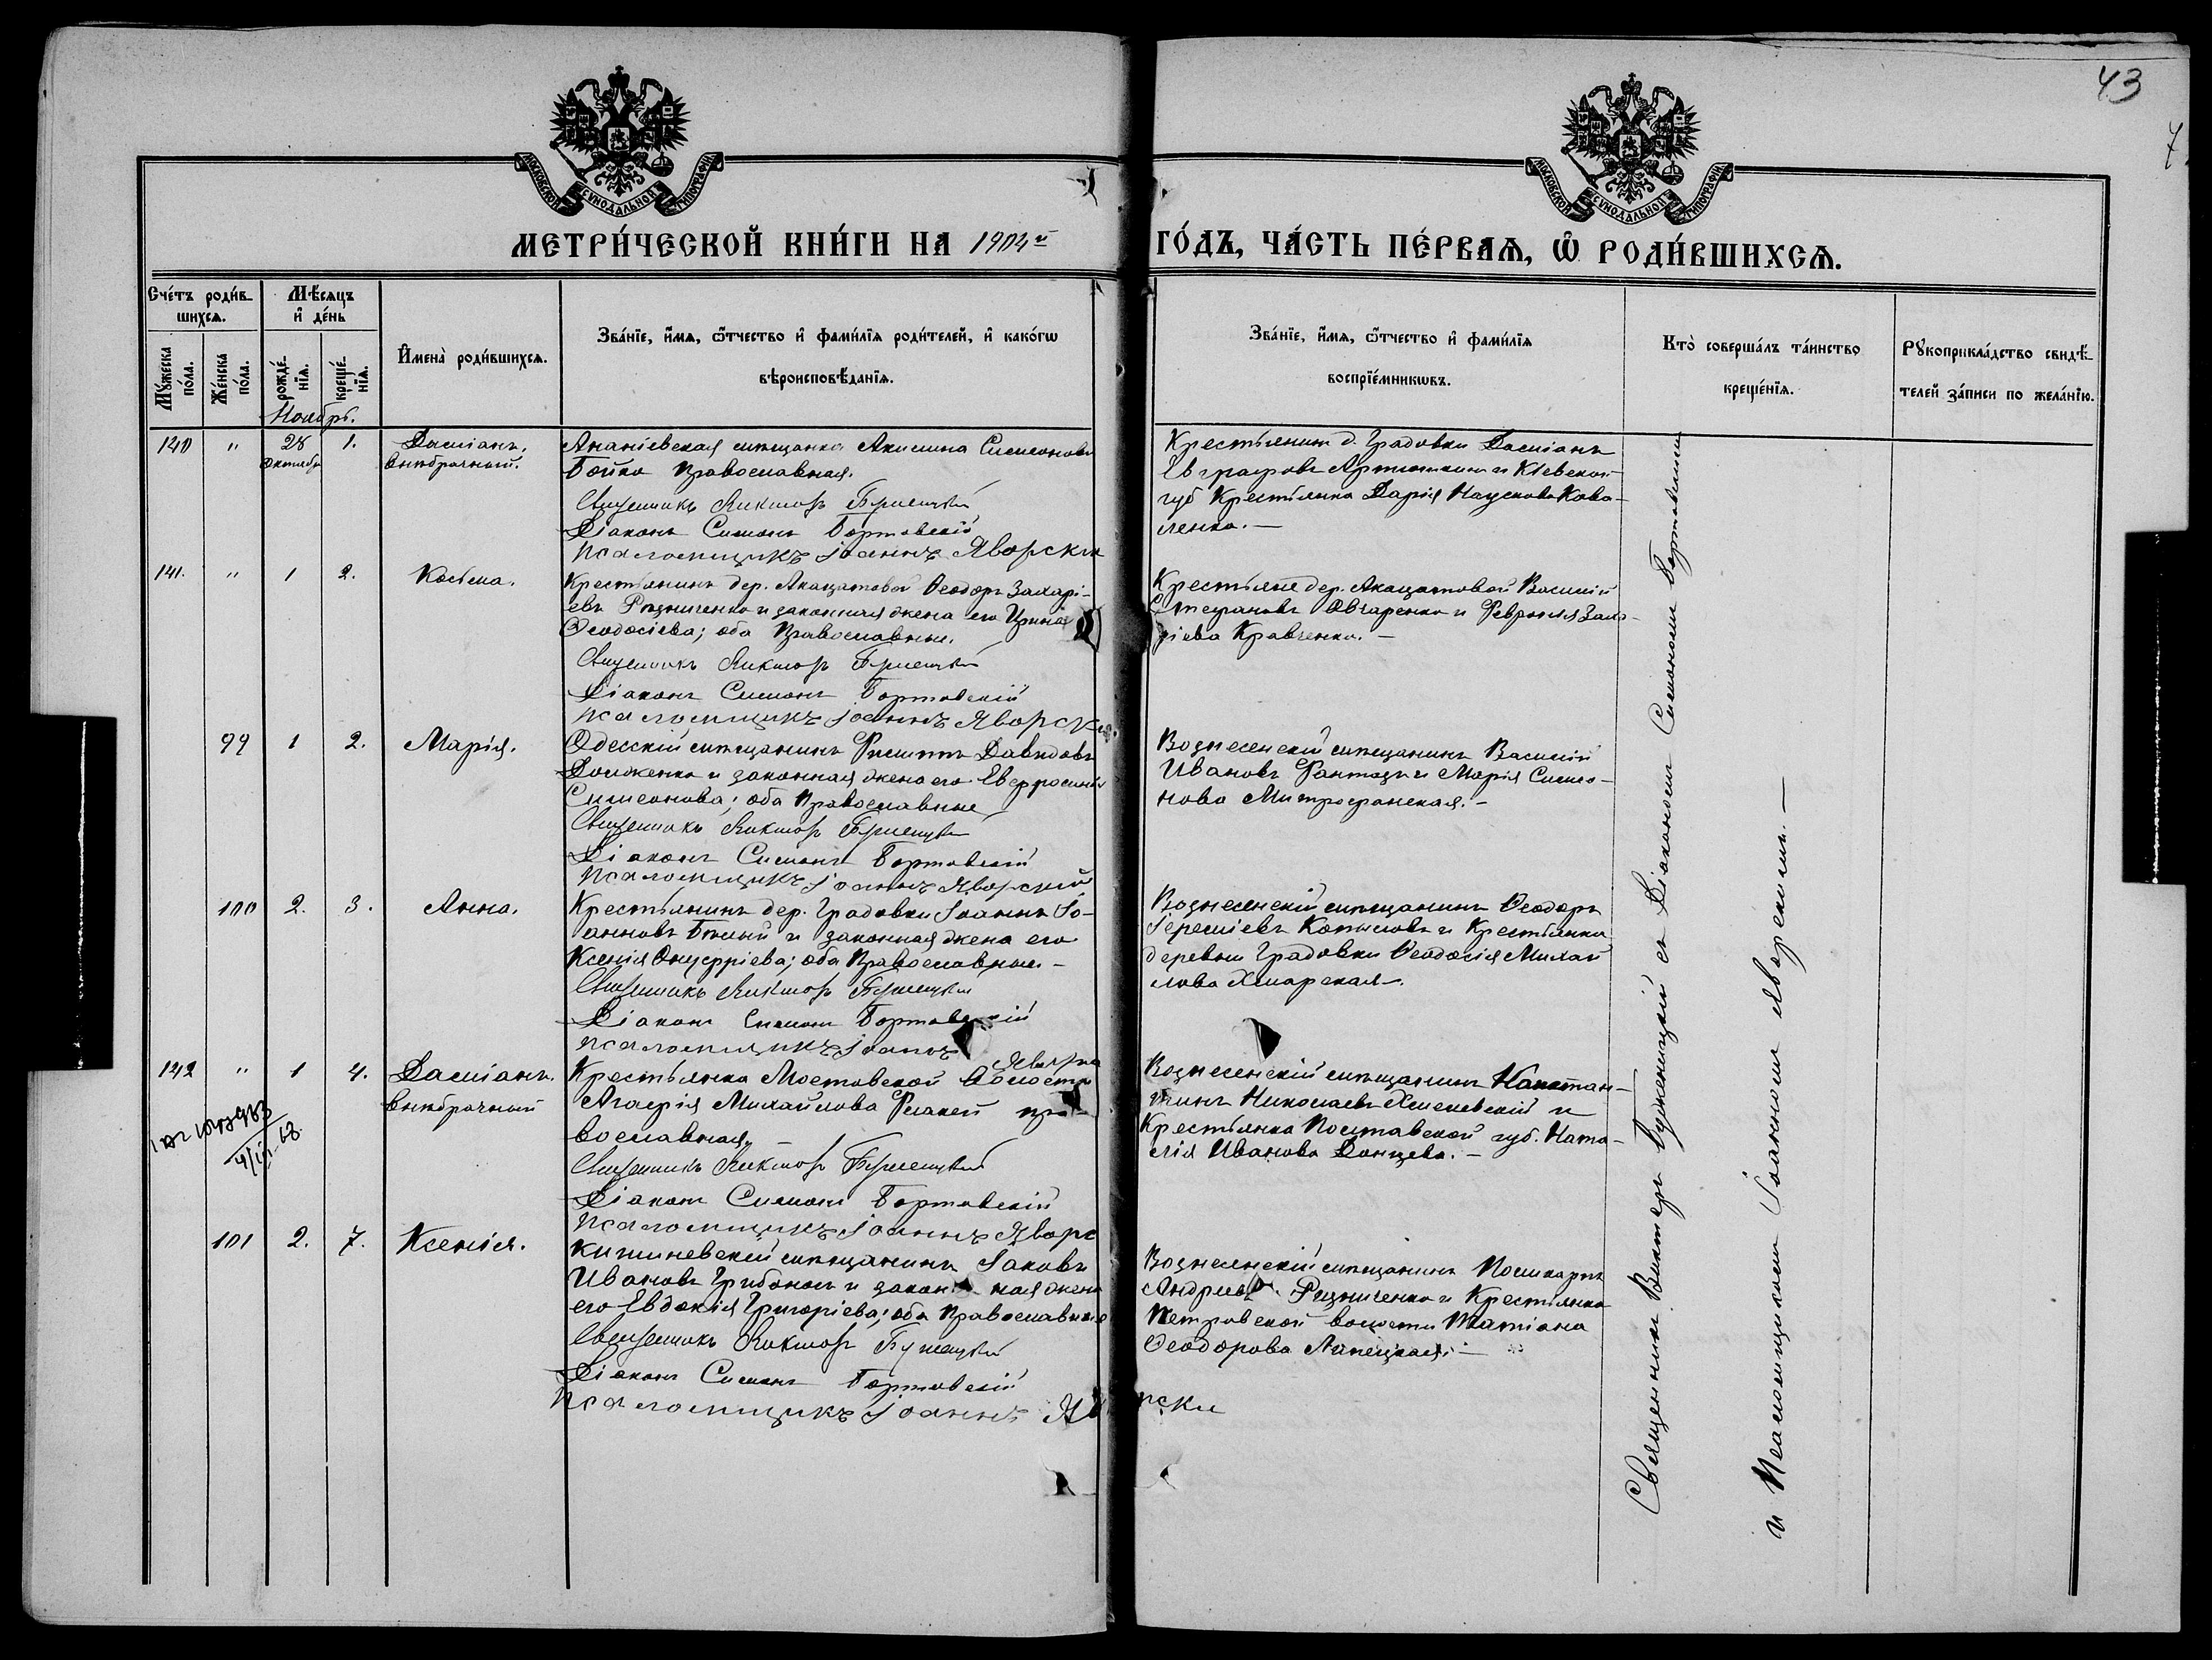 43
7
МОСКОВСКОЙ СѴНОДАЛЬНОЙ ТИПОГРАФІИ
МОСКОВСКОЙ СѴНОДАЛЬНОЙ ТИПОГРАФІИ
МЕТРИ́ЧЕСКОЙ КНИ́ГИ НА 1904й
ГО́ДЪ, ЧА́СТЬ ПЕ́РВАѦ, Ѡ҆ РОДИ́ВШИХСѦ.
Сче́тъ роди́в-
шихсѧ.
Мѣ́сѧцъ
и҆ де́нь
Мꙋ́жеска
по́ла.
Же́нска
по́ла.
рожде́-
нїѧ.
креще́-
нїѧ.
И҆мена̀ роди́вшихсѧ.
Зва́нїе, и҆́мѧ, ѻ҆́тчество и҆ фами́лїѧ роди́телей, и҆ како́гѡ
вѣроисповѣ́данїѧ.
Зва́нїе, и҆́мѧ, ѻ҆́тчество и҆ фами́лїѧ
воспрїе́мникѡвъ.
Кто̀ соверша́лъ та́инство
креще́нїѧ.
Рꙋкоприкла́дство свидѣ́-
телей за́писи по жела́нїю.
Ноябрь.
140 " 28 1. Даміанъ,
Октября внѣбрачный.
Ананіевская мѣщанка Акилина Симеонова
Бойко православная.
Священникъ Викторъ
Діаконъ Симонъ Бортовскій
Псаломщикъ Іоаннъ Яворски
Крестьянинъ д. Градовки Даміанъ
Евграфовъ и Кіевской
губ крестьянка Дарія Наумова Кова-
ленко. —
141. " 1 2. Косьма.
Крестьянинъ дер. Акацатовой Ѳеодоръ Захарі-
евъ Рѣзниченко и законная жена его Ирина
Ѳеодосіева; оба Православные.
Священникъ Викторъ
Діаконъ Симонъ Бортовскій
Псаломщикъ Іоаннъ Яворскій.
Крестьяне дер. Акацатовой Василій
Стефановъ Овчаренко и Февронія Заха-
ріева Кравченко. —
99 1 2. Марія.
Одесскій мѣщанинъ Филиппъ Давидовъ
Долженко и законная жена его Евфросинія
Симеонова; оба Православные
Священникъ Викторъ
Діаконъ Симонъ Бортовскій
Псаломщикъ Іоаннъ Яворский
Вознесенскій мѣщанинъ Василій
Ивановъ и Марія Симео-
нова Митрофанская. —
100 2. 3. Анна.
Крестьянинъ дер. Градовки Іоаннъ Іо-
анновъ Бѣлый и законная жена его
Ксенія Онуфріева; оба Православные —
Священникъ Викторъ
Діаконъ Симонъ Бортовскій
Псаломщикъ Іоаннъ
Вознесенскій мѣщанинъ Ѳеодоръ
Іереміевъ Копыловъ и Крестьянка
деревни Градовки Ѳеодосія Михай
лова Хмарская —.
142 " 1 4. Даміанъ.
внѣбрачный
Крестьянка Мостовской Волости
Агафія Михайлова пра-
вославная. —
Священникъ Викторъ
Діаконъ Симонъ Бортовскій
Псаломщикъ Іоаннъ Яворс
Вознесенскій мѣщанинъ Констан-
тинъ Николаевъ Хмелевскій и
Крестьянка Полтавской губ. Ната-
лія Иванова Донцева. —
4/III-68.
101 2. 7. Ксенія.
Кишиневскій мѣщанинъ Іаковъ
Ивановъ Грибанов и законная жена
его Евдокія Григоріева; оба Православные
Священникъ Викторъ
Діаконъ Симонъ Бортовскій
Псаломщикъ Іоаннъ Яворски
Вознесенскій мѣщанинъ Поликарпъ
Андреевъ Рѣзниченко и Крестьянка
Петровской волости Татіана
Ѳеодорова Липецкая. —
Священникъ Викторъ Буженицкій съ Діакономъ Симономъ Бортовскимъ
и Псаломщикомъ Іоанномъ Яворскимъ. —